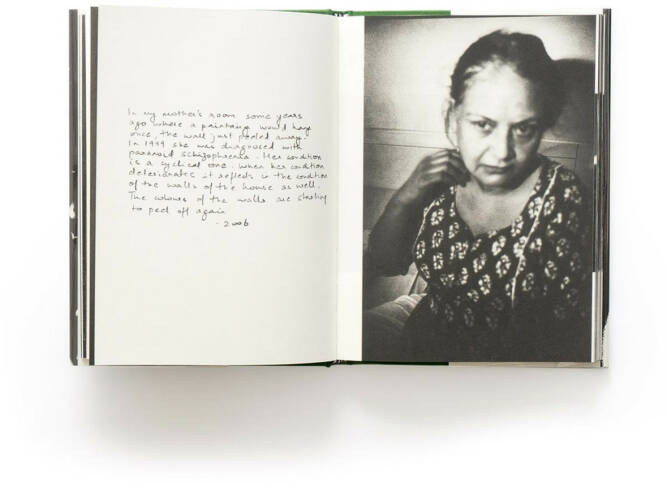 In my mother's room some years
ago where a painting would have
once, the wall just peeled away.
In 1999 she was diagnosed with
paranoid schizophrenia. Her condition
is a cyclical one. When her condition
deteriorates it reflects in the condition
of the walls of the house as well.
The colours of the walls are starting
to peel off again
- 2006